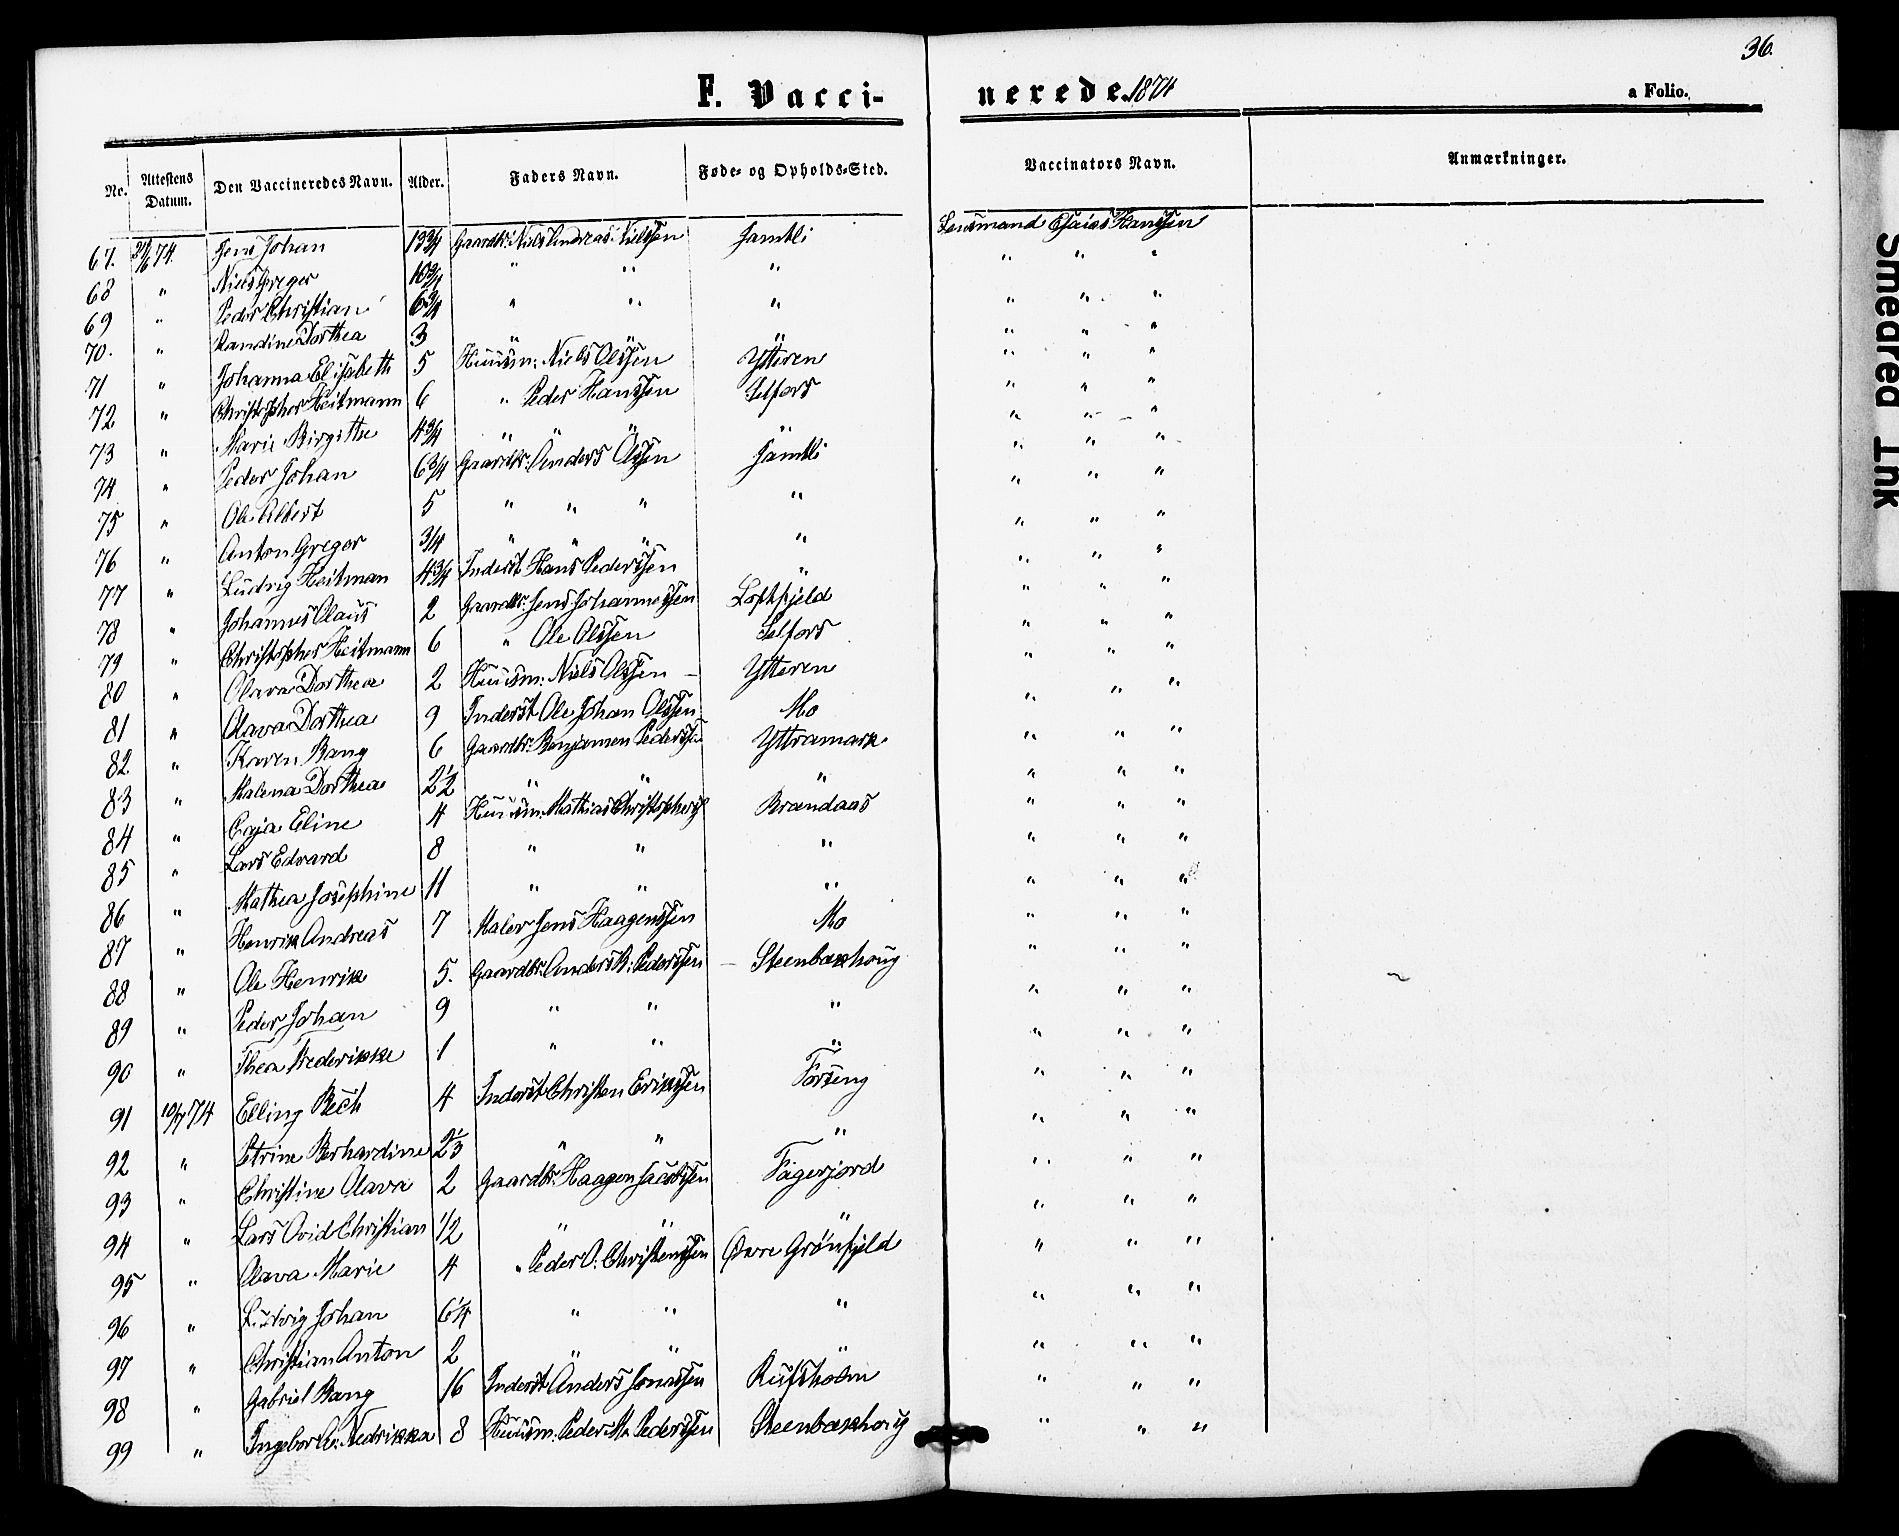 36.
F. Vaccinerede 1874
a Folio.
No. Attestens Datum. Den Vaccineredes Navn. Alder. Faders Navn. Føde- og Opholds-Sted. Vaccinators Navn. Anmærkninger.
67. 21/6 74. Jens Johan 13 3/4 Gaardbr: Niels Andreas Nielssen Jamtli Lensmand Esaias Hanssen
68 " Niels Greger 10 3/4 " " " " " "
69 " Peder Christian 6 3/4 " " " " " "
70. " Randine Dorthea 3 " " " " " "
71 " Johanna Elisabeth 5 Huusm: Niels Olssen Ytteren " " "
72 " Christopher Heitmann 6 " Peder Hanssen Selfors " " "
73 " Marie Birgithe 4 3/4 " " " " " " "
74 " Peder Johan 6 3/4 Gaardbr: Anders Olssen Jamtli " " "
75 " Ole Albert 5 " " " " " " "
76 " Anton Gregor 3/4 " " " " " " "
77 " Ludvig Heitman 4 3/4 Inderst Hans Pederssen " " " "
78 " Johannes Olaus 2 Gaardbr: Jens Johannessen Loftfjeld " " "
79 " Christopher Heitmann 6 " Ole Olssen Selfors " " "
80 " Olava Dorthea 2 Huusm: Niels Olssen Ytteren " " "
81 " Olava Dorthea 9 Inderst Ole Johan Olssen Mo " " "
82 " Karen Bang 6 Gaardbr: Benjamen Pederssen Yttramark " " "
83 " Malena Dorthea 2 1/2 " " " " " "
84 " Caja Eline 4 Huusm: Mathias Christophers. Brændaas " " "
85 " Lars Edvard 8 " " " " " "
86 " Mathea Josephine 11 " " " " " "
87 " Henrik Andreas 7 Maler Jens Haagenssen Mo " " "
88 " Ole Henrik 5. Gaardbr: Anders R: Pederssen Steenbækhoug " " "
89 " Peder Johan 9 " " " " " "
90 " Thea Frederikke 1 " " " " " "
91 10/7 74 Elling Bech 4 Inderst Christen Erikssen Forseng " " "
92 " Petrine Berhardine 2 1/3 " " " " " "
93 " Christine Olava 2 Gaardbr: Haagen Jacobssen Fagerjord " " "
94 " Lars Ovid Christian 1/2 " " " " " "
95 " Olava Marie 4 " Peder O. Christenssen Øvre Grønfjeld " " "
96 " Ludvig Johan 6 1/4 " " " " " "
97 " Christian Anton 2 " " " " " "
98 " Gabriel Bang 16 Inderst Anders Jonassen Rufsholm " " "
99 " 8 Huusm: Peder M. Pederssen Steenbækhoug " " "
Smeared Ink